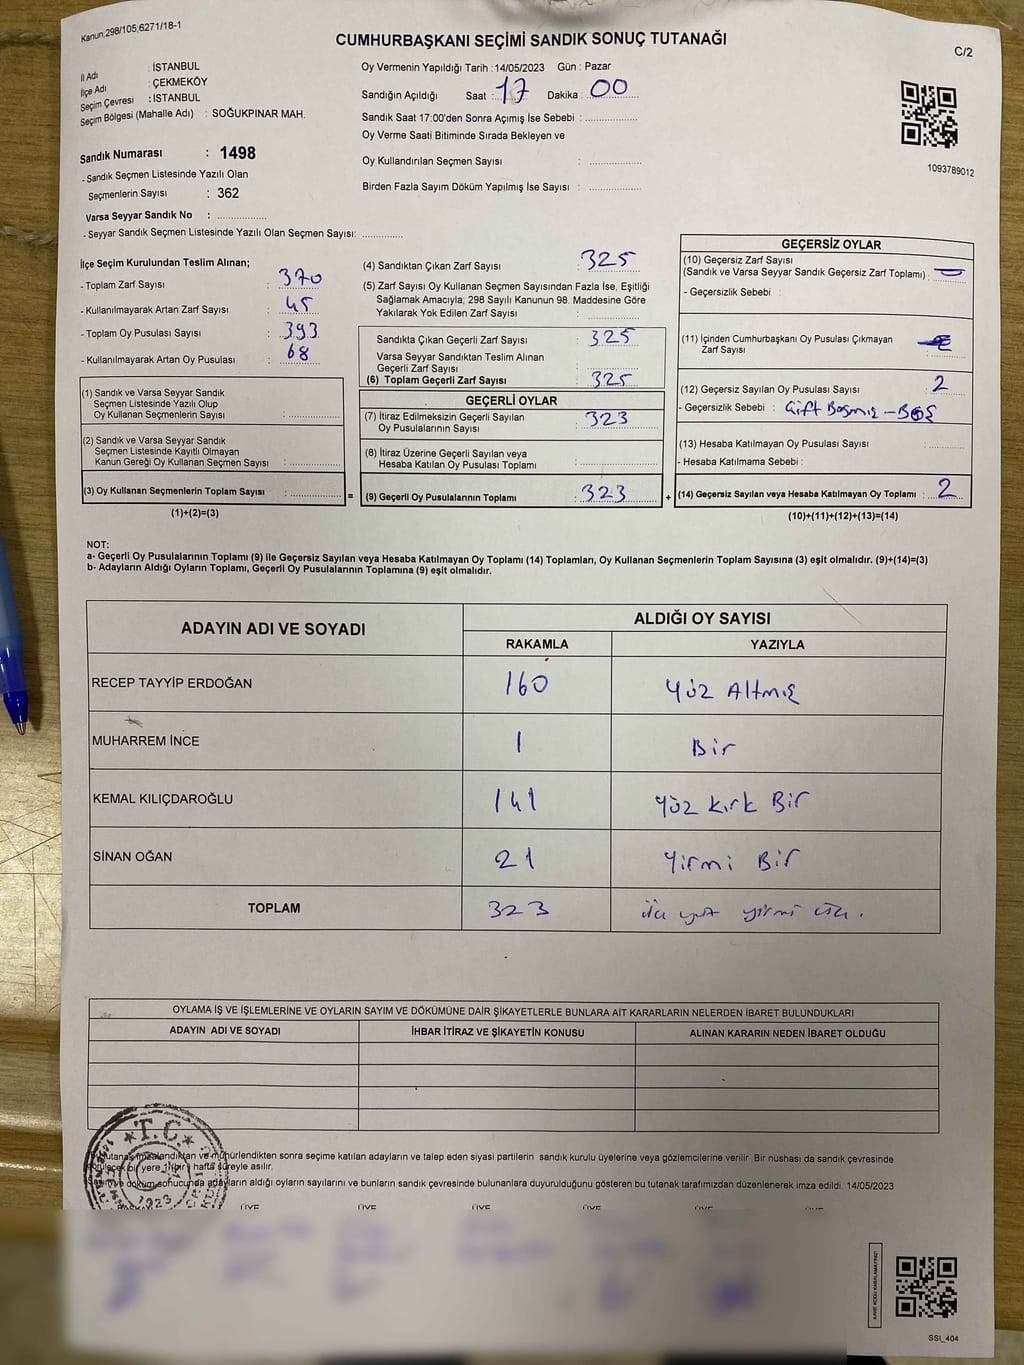 Kanun, 298/105;6271/18-1
CUMHURBAŞKANI SEÇİMİ SANDIK SONUÇ TUTANAĞI
C/2
İl Adı : İSTANBUL
İlçe Adı : ÇEKMEKÖY
Seçim Çevresi : İSTANBUL
Seçim Bölgesi (Mahalle Adı) : SOĞUKPINAR MAH.
Sandık Numarası : 1498
- Sandık Seçmen Listesinde Yazılı Olan
Seçmenlerin Sayısı : 362
Varsa Seyyar Sandık No : ..................
- Seyyar Sandık Seçmen Listesinde Yazılı Olan Seçmen Sayısı: .............
Oy Vermenin Yapıldığı Tarih : 14/05/2023 Gün : Pazar
Sandığın Açıldığı Saat : 17 Dakika : 00
Sandık Saat 17:00'den Sonra Açımış İse Sebebi : ..................
Oy Verme Saati Bitiminde Sırada Bekleyen ve
Oy Kullandırılan Seçmen Sayısı : ..................
Birden Fazla Sayım Döküm Yapılmış İse Sayısı : ..................
1093789012
İlçe Seçim Kurulundan Teslim Alınan;
- Toplam Zarf Sayısı : 370
- Kullanılmayarak Artan Zarf Sayısı : 45
- Toplam Oy Pusulası Sayısı : 393
- Kullanılmayarak Artan Oy Pusulası : 68
(1) Sandık ve Varsa Seyyar Sandık
Seçmen Listesinde Yazılı Olup
Oy Kullanan Seçmenlerin Sayısı : ..................
(2) Sandık ve Varsa Seyyar Sandık
Seçmen Listesinde Kayıtlı Olmayan
Kanun Gereği Oy Kullanan Seçmen Sayısı : ..................
(3) Oy Kullanan Seçmenlerin Toplam Sayısı : .................. =
(1)+(2)=(3)
(4) Sandıktan Çıkan Zarf Sayısı : 325
(5) Zarf Sayısı Oy Kullanan Seçmen Sayısından Fazla İse, Eşitliği
Sağlamak Amacıyla; 298 Sayılı Kanunun 98. Maddesine Göre
Yakılarak Yok Edilen Zarf Sayısı : ..................
Sandıkta Çıkan Geçerli Zarf Sayısı : 325
Varsa Seyyar Sandıktan Teslim Alınan
Geçerli Zarf Sayısı :
(6) Toplam Geçerli Zarf Sayısı : 325
GEÇERLİ OYLAR
(7) İtiraz Edilmeksizin Geçerli Sayılan
Oy Pusulalarının Sayısı : 323
(8) İtiraz Üzerine Geçerli Sayılan veya
Hesaba Katılan Oy Pusulası Toplamı : ..................
(9) Geçerli Oy Pusulalarının Toplamı : 323 +
GEÇERSİZ OYLAR
(10) Geçersiz Zarf Sayısı
(Sandık ve Varsa Seyyar Sandık Geçersiz Zarf Toplamı) :
- Geçersizlik Sebebi :
(11) İçinden Cumhurbaşkanı Oy Pusulası Çıkmayan
Zarf Sayısı :
(12) Geçersiz Sayılan Oy Pusulası Sayısı : 2
- Geçersizlik Sebebi : Çift Basmış - Boş
(13) Hesaba Katılmayan Oy Pusulası Sayısı :
- Hesaba Katılmama Sebebi :
(14) Geçersiz Sayılan veya Hesaba Katılmayan Oy Toplamı : 2
(10)+(11)+(12)+(13)=(14)
NOT:
a- Geçerli Oy Pusulalarının Toplamı (9) ile Geçersiz Sayılan veya Hesaba Katılmayan Oy Toplamı (14) Toplamları, Oy Kullanan Seçmenlerin Toplam Sayısına (3) eşit olmalıdır. (9)+(14)=(3)
b- Adayların Aldığı Oyların Toplamı, Geçerli Oy Pusulalarının Toplamına (9) eşit olmalıdır.
ADAYIN ADI VE SOYADI ALDIĞI OY SAYISI
RAKAMLA YAZIYLA
RECEP TAYYİP ERDOĞAN 160 Yüz Altmış
MUHARREM İNCE 1 Bir
KEMAL KILIÇDAROĞLU 141 Yüz Kırk Bir
SİNAN OĞAN 21 Yirmi Bir
TOPLAM 323 üç yüz yirmi üç.
OYLAMA İŞ VE İŞLEMLERİNE VE OYLARIN SAYIM VE DÖKÜMÜNE DAİR ŞİKAYETLERLE BUNLARA AİT KARARLARIN NELERDEN İBARET BULUNDUKLARI
ADAYIN ADI VE SOYADI İHBAR İTİRAZ VE ŞİKAYETİN KONUSU ALINAN KARARIN NEDEN İBARET OLDUĞU
T.C
1923
tutanak imzalandıktan ve mühürlendikten sonra seçime katılan adayların ve talep eden siyasi partilerin sandık kurulu üyelerine veya gözlemcilerine verilir. Bir nüshası da sandık çevresinde
görülecek bir yere 1(bir) hafta süreyle asılır.
Seçim ve döküm sonucunda adayların aldığı oyların sayılarını ve bunların sandık çevresinde bulunanlara duyurulduğunu gösteren bu tutanak tarafımızdan düzenlenerek imza edildi. 14/05/2023
ÜYE ÜYE ÜYE ÜYE ÜYE ÜYE
SSI_404